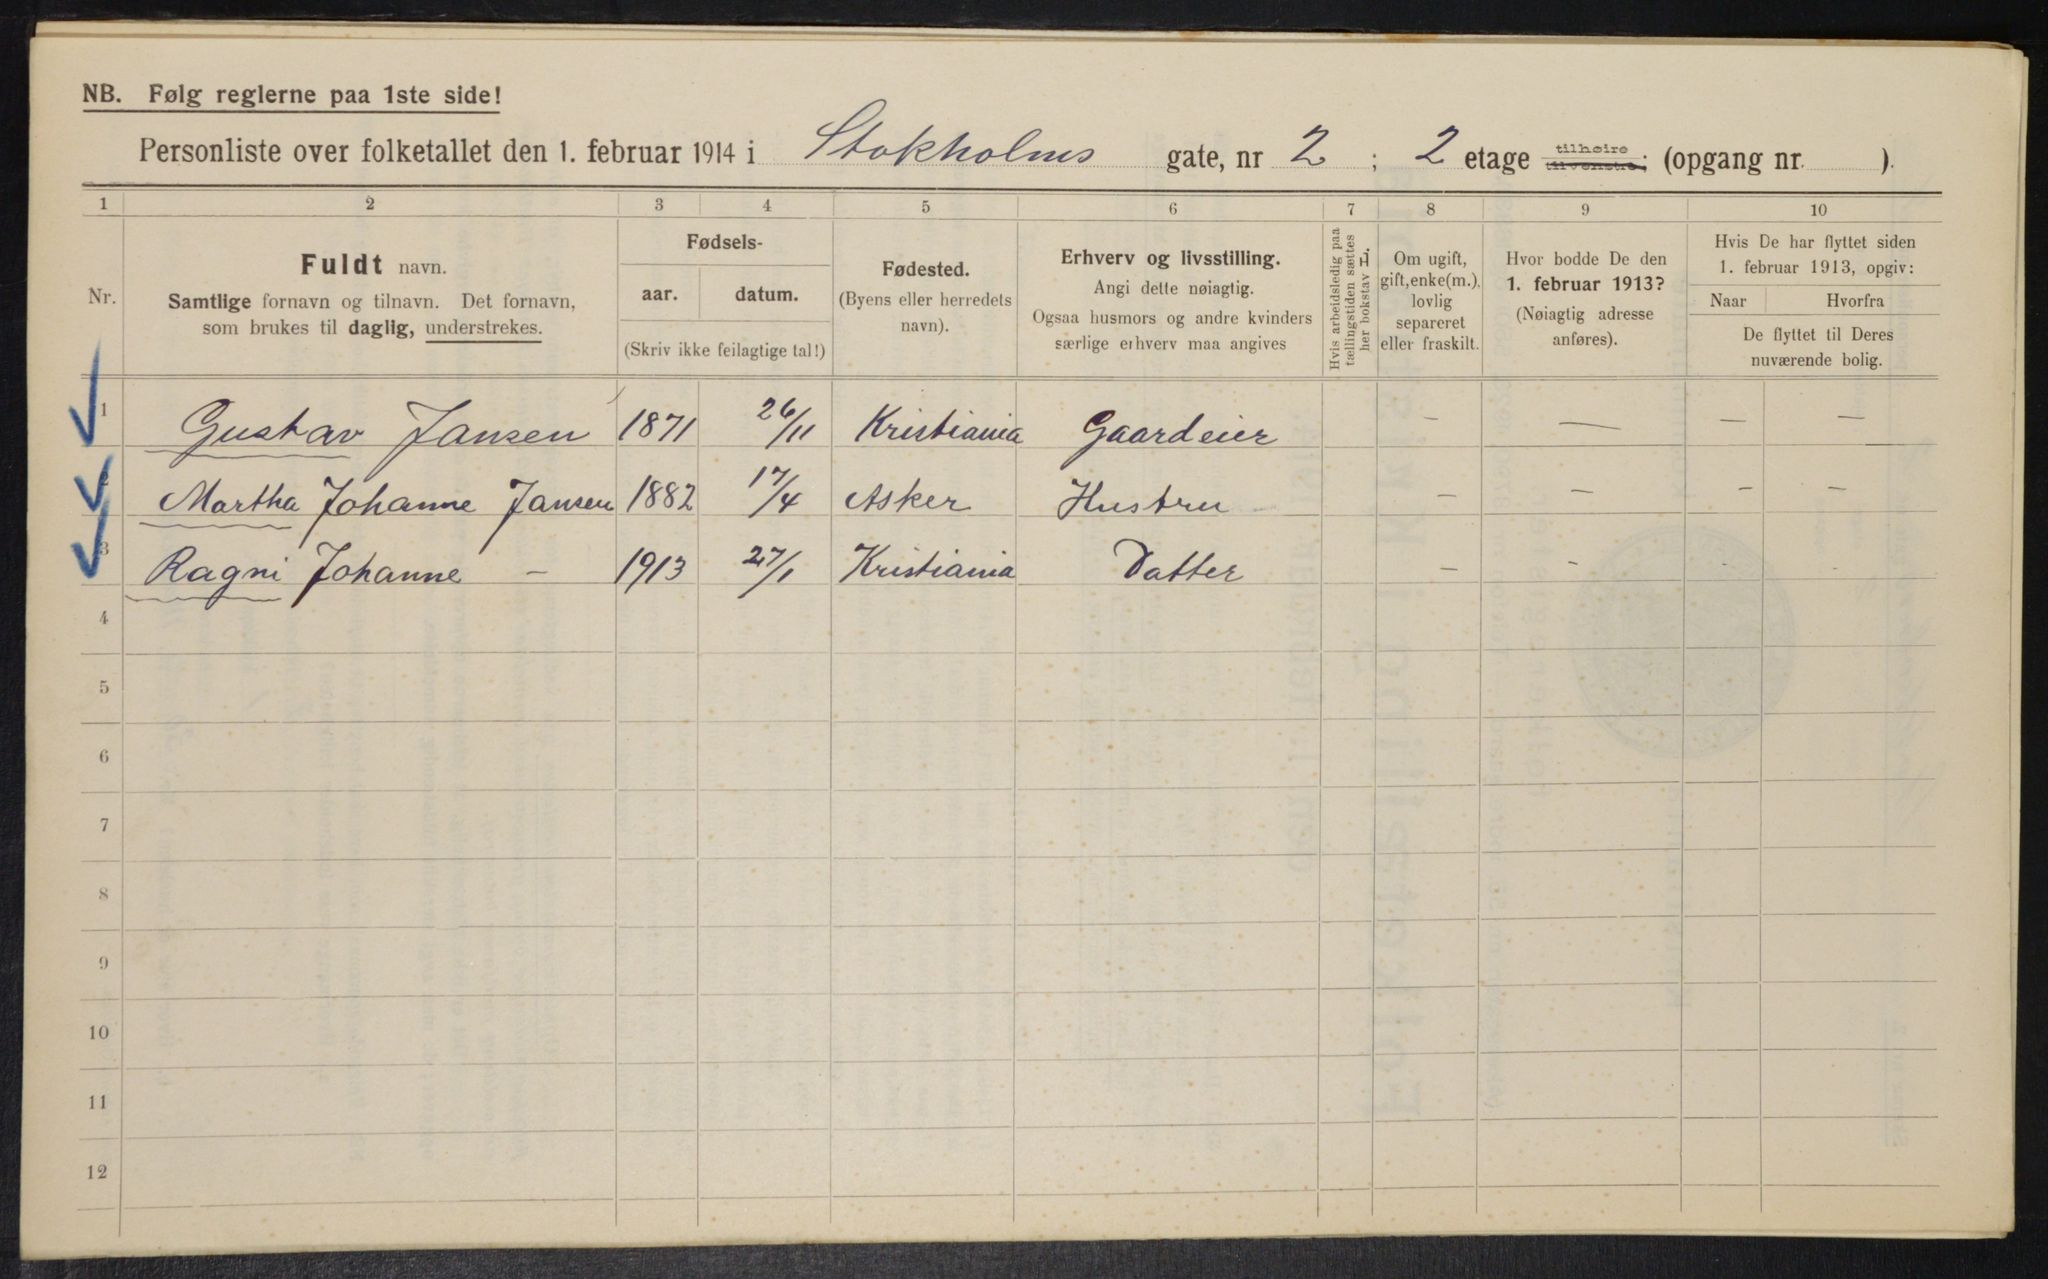 NB. Følg reglerne paa 1ste side!
Personliste over folketallet den 1. februar 1914 i Stokholms gate, nr 2 ; 2 etage tilhøire tilvenstre; (opgang nr. ).
1 2 3 4 5 6 7 8 9 10
Nr.
Fuldt navn.
Samtlige fornavn og tilnavn. Det fornavn,
som brukes til daglig, understrekes.
Fødsels-
aar. datum.
(Skriv ikke feilagtige tal!)
Fødested.
(Byens eller herredets
navn).
Erhverv og livsstilling.
Angi dette nøiagtig.
Ogsaa husmors og andre kvinders
særlige erhverv maa angives
Hvis arbeidsledig paa
tællingstiden sættes
her bokstav L.
Om ugift,
gift, enke(m.),
lovlig
separeret
eller fraskilt.
Hvor bodde De den
1. februar 1913?
(Nøiagtig adresse
anføres).
Hvis De har flyttet siden
1. februar 1913, opgiv:
Naar Hvorfra
De flyttet til Deres
nuværende bolig.
1 Gustav Jansen 1871 26/11 Kristiania Gaardeier — — — —
2 Martha Johanne Jansen 1882 17/4 Asker Hustru — — — —
3 Ragni Johanne — 1913 27/1 Kristiania Datter — - — —
4
5
6
7
8
9
10
11
12